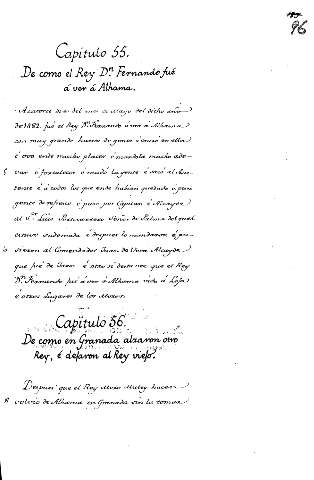 96
Capitulo 55.
De como el Rey Dn. Fernando fué
á ver á Alhama.
A catorce dias del mes de Mayo del dicho año
de 1482. fué el Rey Dn. Fernando á ver á Alhama
con muy grande hueste de gente é entró en ella
é ovo ende mucho placer é mandola mucho ado-
5 var é fortalecer é mudó la gente é sacó al
é á todos los que ende habian quedado é puso
gente de refresco é puso por Capitan é Alcayde
al Sr. Luis Portocarrero Señor de Palma del qual
estuvo é despues le mandaron é pu-
10 sieron al Comendador Juan de Vera Alcayde
que fué de é otro si desta vez que el Rey
Dn. Fernando fué á ver á Alhama vido á Loja
é otros Lugares de los Moros.
Capitulo 56.
De como en Granada alzaron otro
Rey, é dejaron al Rey viejo.
Despues que el Rey Muley hacen
volvió de Alhama en Granada sin la tomar